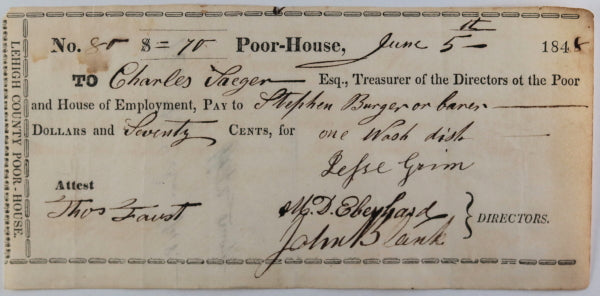 LEHIGH COUNTY POOR-HOUSE.
No. 80 $= 70 Poor-House, June 5th 1848
TO Charles Saeger Esq., Treasurer of the Directors ot the Poor
and House of Employment, PAY to Stephen Burger or barer
DOLLARS and Seventy CENTS, for one Wash dish
Jesse Grim
Attest
Thos Faust M. D. Eberhard
John Blank
DIRECTORS.